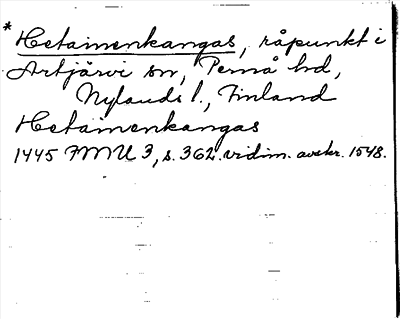 * Hetainenkangas, råpunkt i
Artjärvi sn, Pernå hd,
Nylands l., Finland
Hetainenkangas
1445 FMU 3, s. 362. vidim. avskr. 1548.